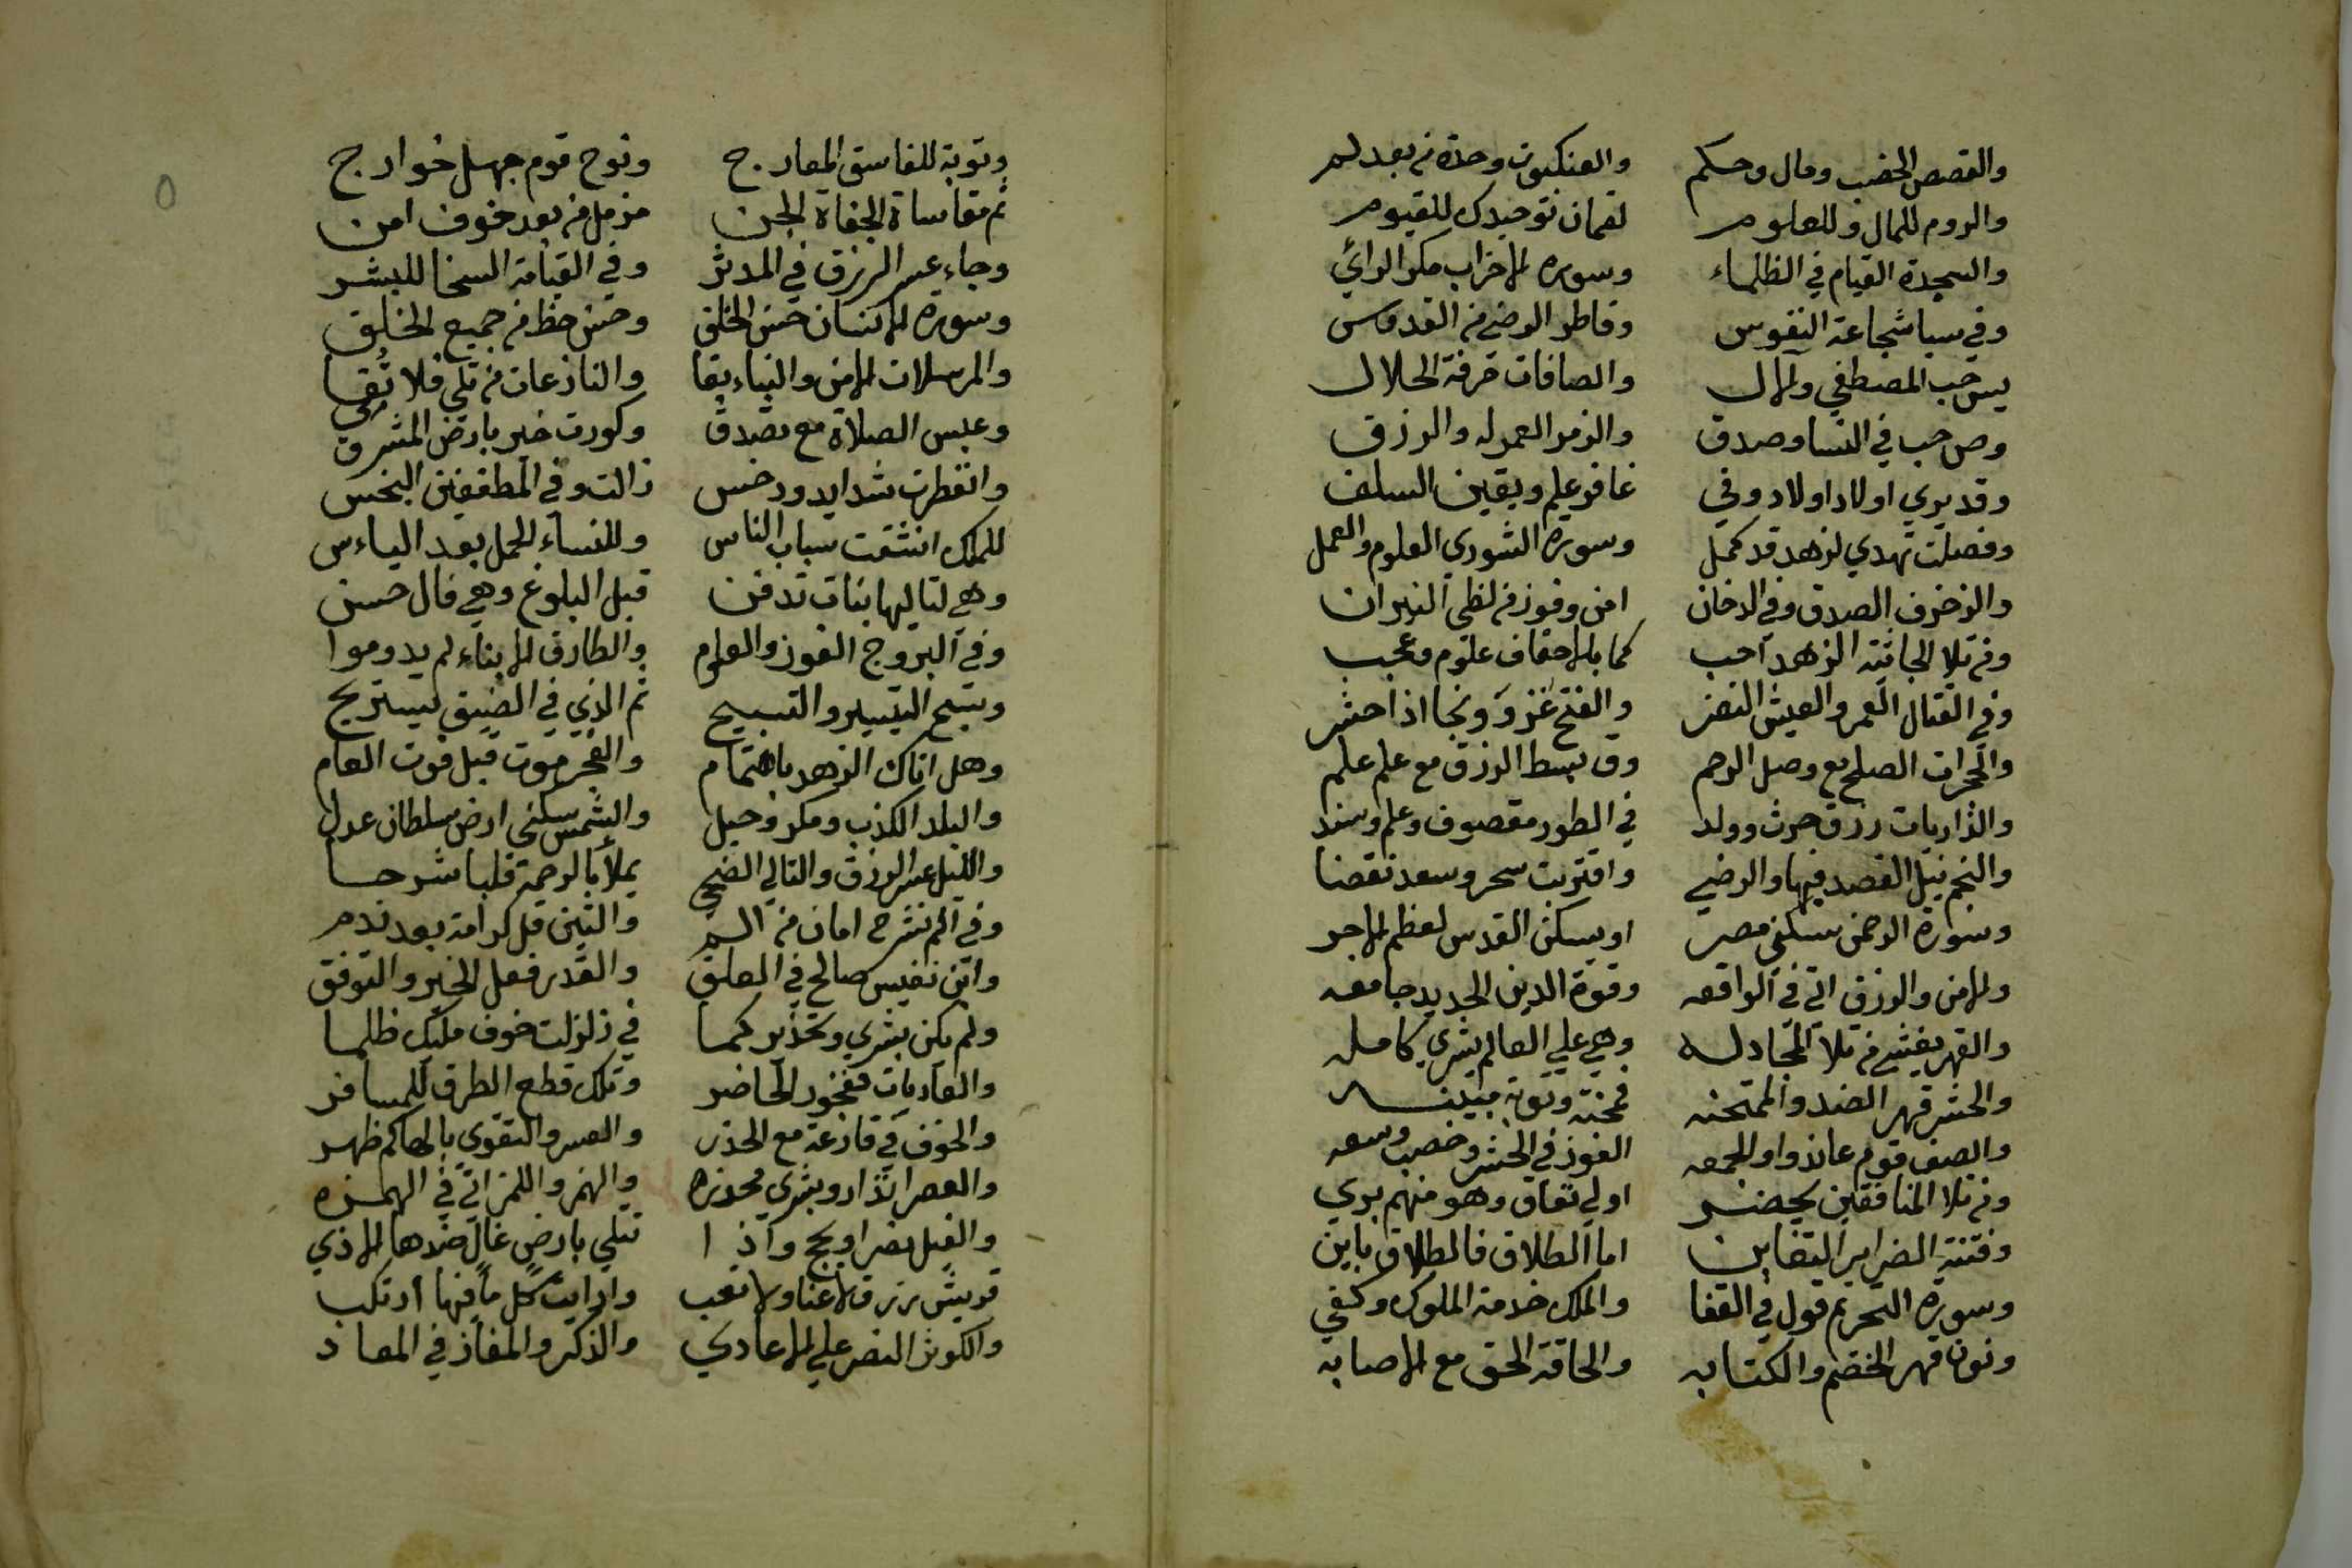 والقصص الخصب ومال وحكم والعنكبوت وحدة من بعد لم
والروم للمال وللعلوم لقمان توحيدك للقيوم
والسجدة القيام في الظلماء وسورة الاحزاب مكر الرائي
وفي سبا شجاعة النفوس وفاطر الرضي من القدوس
يس حب المصطفي والال والصافات حرفة الحلال
وص حب في النسا وصدق والزمر العمر له والرزق
وقد يري اولاد اولاد وفي غافر علم ويقين السلف
وفصلت تهدي لزهد قد كمل وسورة الشوري العلوم والعمل
والزخرف الصدق وفي الدخان امن وفوز من لظي النيران
ومن تلا الجاثيه الزهد احب كما بالاحقاف علوم وعجب
وفي القتال العمر والعيش النضر والفتح غزو ونجا اذا حشر
والحجرات الصلح مع وصل الرحم وق بسط الرزق مع علم علم
والذاريات رزق حرث وولد في الطور مقصوف وعلم وسند
والنجم نيل القصد فيها والرضي واقتربت سحر وسعد نقضا
وسورة الرحمن سكني مصر او يسكن القدس لعظم الاجر
والامن والرزق اتي في الواقعه وقوة الدين الحديد جامعه
والقهر يغشي من تلا المجادله وهي علي العالم بشري كامله
والحشر قهر الضد والممتحنه محنة وتوبة مبينه
والصف قوم عاندوا وللجمعه الفوز في الحشر وخصب وسعه
ومن تلا المنافقين يحضر اولي نفاق وهو منهم بري
وفتنة الضراير التغابن اما الطلاق فالطلاق باين
وسورة التحريم قول في القفا والملك خدمة الملوك وكفي
ونون قهر الخصم والكتابه والحاقة الحق مع الاصابه
وتوبة للفاسق المعارج ونوح قوم جهل خوارج
ثم مقاساة الجفاة الجن مزمل من بعد خوف امن
وجاء عسر الرزق في المدثر وفي القيامة السخا للبشر
وسورة الانسان حسن الخلق وحسن حظ من جميع الخلق
والمرسلات الامن والنباء بقا والنازعات من تلي فلا تقي
وعبس الصلاة مع تصدق وكورت خير بارض المشرق
وانفطرت شدايد ودخس زالت وفي المطففين البخس
للملك انشقت سباب الناس وللنساء الحمل بعد الياءس
وهي لتاليها بنات تدفن قبل البلوغ وهي فال حسن
وفي البروج الفوز والعلوم والطارق الابناء لم يدوموا
وسبح التيسير والتسبيح ثم الذي في الضيق يستريح
وهل اتاك الزهد باهتمام والفجر موت قبل فوت العام
والبلد الكذب ومكر وحيل والشمس سكني ارض سلطان عدل
والليل عسر الرزق والتالي الضحي يملأ بالرحمة قلبا شرحا
وفي الم نشرح امان من الم والتين قل كرامة بعد ندم
وابن نفيس صالح في العلق والقدر فعل الخير والتوفق
ولم يكن بشري وتحذير كما في زلزلت خوف مليك ظلما
والعاديات ففجور الحاضر وتلك قطع الطرق للمسافر
والخوف في قارعة مع الحذر والعسر والتقوي بالهاكم ظهر
والعصر انذار وبشري محرزه والهم واللمز اتي في الهمزه
والفيل نصر او يحج واذا تتلي بارض غال ضدها الاذي
قريش رزق لا عنا ولا تعب وارايت كل ما فيها ارتكب
والكوثر النصر علي الاعادي والذكر والمفاز في المعاد